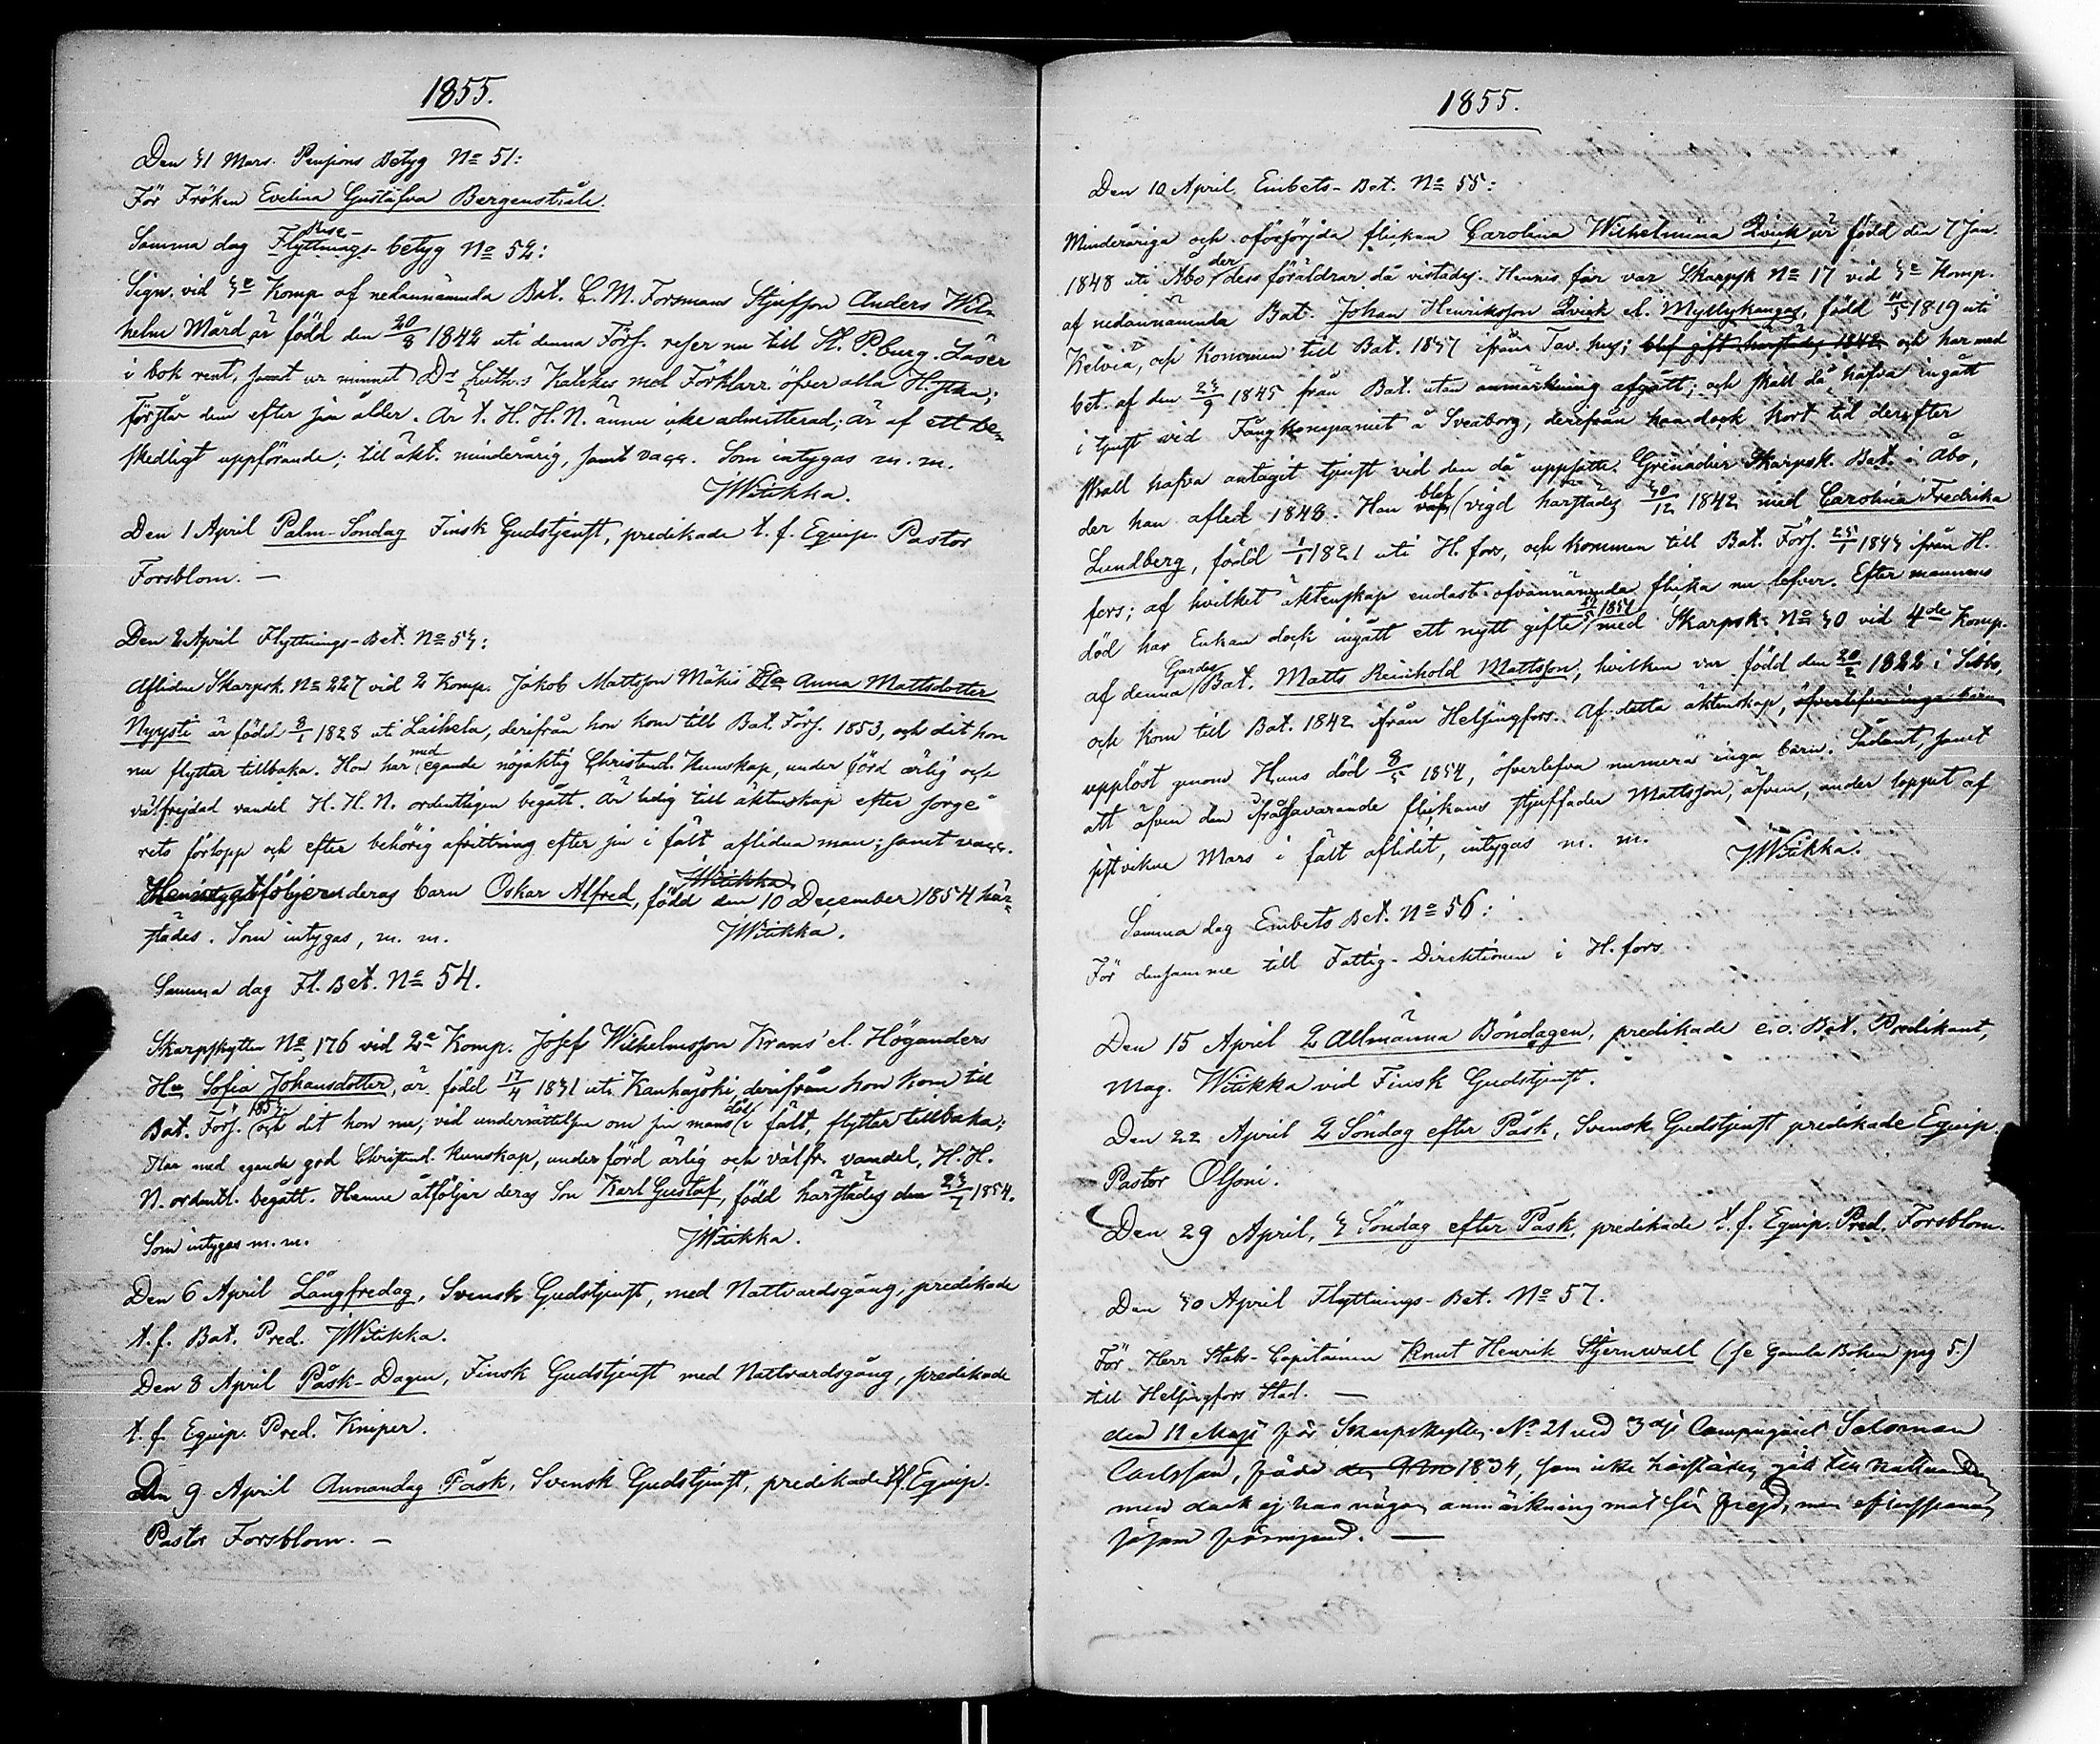 1855.
Den 31 Mars. Pensions Betyg No 51:
För Fröken Evelina Gustafva Bergenstråle.
Rese-
Samma dag Flyttnings-betyg No 52:
Sign. vid 3e Komp. af nedannämnda Bat. C. M. Forsmans Stjufson Anders Wil-
helm Mård är född den 20/8 1842 uti denna Förs. reser nu till St. P.burg. Läser
i bok rent, samt ur minnet Dr Luth:s Katekes med Förklarr. öfver alla H.stkn;
förstår den efter sin ålder. Är t. H. H. N. ännu icke admitterad; är af ett be-
skedligt uppförande; till äkt. minderårig, samt vacc. Som intygas m. m.
JWitikka.
Den 1 April Palm-Söndag Finsk Gudstjenst, predikade t. f. Equip. Pastor
Forsblom. —
Den 2 April Flyttnings-Bet. No 53:
Aflidne Skarpsk. No 227 vid 2 Komp. Jakob Mattsson Mäkis Ha Anna Mattsdotter
Nyysti är född 8/1 1828 uti Laihela, derifrån hon kom till Bat. Förs. 1853, och dit hon
nu flyttar tillbaka. Hon har med egande nöjaktig Christend. Kunskap, under förd ärlig och
välfrejdad vandel H. H. N. ordentligen begått. Är ledig till äktenskap efter sorge å-
rets förlopp och efter behörig afvittring efter sin i fält aflidna man; samt vacc.
Witikka.
Henne åtföljer deras barn Oskar Alfred, född den 10 December 1854 här-
städes. Som intygas, m. m. JWitikka.
Samma dag Fl. Bet. No 54.
Skarpskytten No 176 vid 2e Komp. Josef Wilhelmsson Krans el. Höganders
Hu Sofia Johansdotter, är född 17/4 1831 uti Kanhajoki, derifrån hon kom till
Bat. Förs. 1853 och dit hon nu, vid underrättelsen om sin mans död i fält, flyttar tillbaka;
Har med egande god Christend. Kunskap, under förd ärlig och välfr. vandel, H. H.
N. ordentl. begått. Henne åtföljer deras Son Karl Gustaf, född härstädes den 23/2 1854.
Som intygas m. m. JWitikka.
Den 6 April Långfredag, Svensk Gudstjenst, med Nattvardsgång, predikade
t. f. Bat. Pred. JWitikka.
Den 8 April Påsk-Dagen, Finsk Gudstjenst med Nattvardsgång, predikade
t. f. Equip. Pred. Kniper.
Den 9 April Annandag Påsk, Svensk Gudstjenst, predikade t.f. Equip.
Pastor Forsblom. —
1855.
Den 10 April. Embets-Bet. No 55:
Minderåriga och oförsörjda flickan Carolina Wilhelmina Qvick är född den 7 Jan.
1848 uti Åbo der dess föräldrar då vistades. Hennes far var Skarpsk No 17 vid 3e Komp.
af nedannämnda Bat. Johan Henriksson Qvick el. Myllykangas, född 11/5 1819 uti
Kelviå, och kommen till Bat. 1837 ifrån Tav. hus; blef gift härstädes 1842 och har med
bet. af den 23/9 1845 från Bat. utan anmärkning afgått; och skall då hafva ingått
i tjenst vid Fångkompaniet å Sveaborg, derifrån han dock kort tid derefter
skall hafva antagit tjenst vid den då uppsatte Grenadier Skarpsk. Bat. i Åbo,
der han afled 1848. Han blef vigd härstädes 30/12 1842 med Carolina Fredrika
Lundberg, född 1/1 1821 uti H. fors, och kommen till Bat. Förs. 25/1 1843 ifrån H.
fors; af hvilket äktenskap endast ofvannämnda flicka nu lefver. Efter mannens
död har Enkan dock ingått ett nytt gifte 1851 med Skarpsk: No 30 vid 4de Komp.
af denna Gardes Bat. Matts Reinhold Mattsson, hvilken var född den 20/2 1822 i Sibbo,
och kom till Bat. 1842 ifrån Helsingfors. Af detta äktenskap, öfverlefva inga barn
upplöst genom Hans död 8/5 1854, öfverlefva numera inga barn. Sådant, samt
att äfven den ifrågavarande flickans stjuffader Mattsson, äfven, under loppet af
sistvikne Mars i fält aflidit, intygas m. m. JWitikka.
Samma dag Embets Bet. No 56:
För densamme till Fattig-Direktionen i H. fors
Den 15 April 2 Allmänna Böndagen, predikade e. o. Bat. Predikant,
Mag. Witikka vid Finsk Gudstjenst.
Den 22 April 2 Söndag efter Påsk, Svensk Gudstjenst predikade Equip.
Pastor Olsoni.
Den 29 April, 3 Söndag efter Påsk, predikade t. f. Equip. Pred. Forsblom.
Den 30 April Flyttnings-Bet. No 57.
För Herr Stabs-Capitainen Knut Henrik Stjernvall (se Gamla Boken pag 5)
till Helsingfors Stad. —
den 11 Maji för Skarpskytten No 21 vid 3dje Compagniet Salomon
Carlsson, född 1834, som icke härstädes gått till nattvarden
men dock ej har någon anmärkning mot sin frejd, men
såsom försvund. —